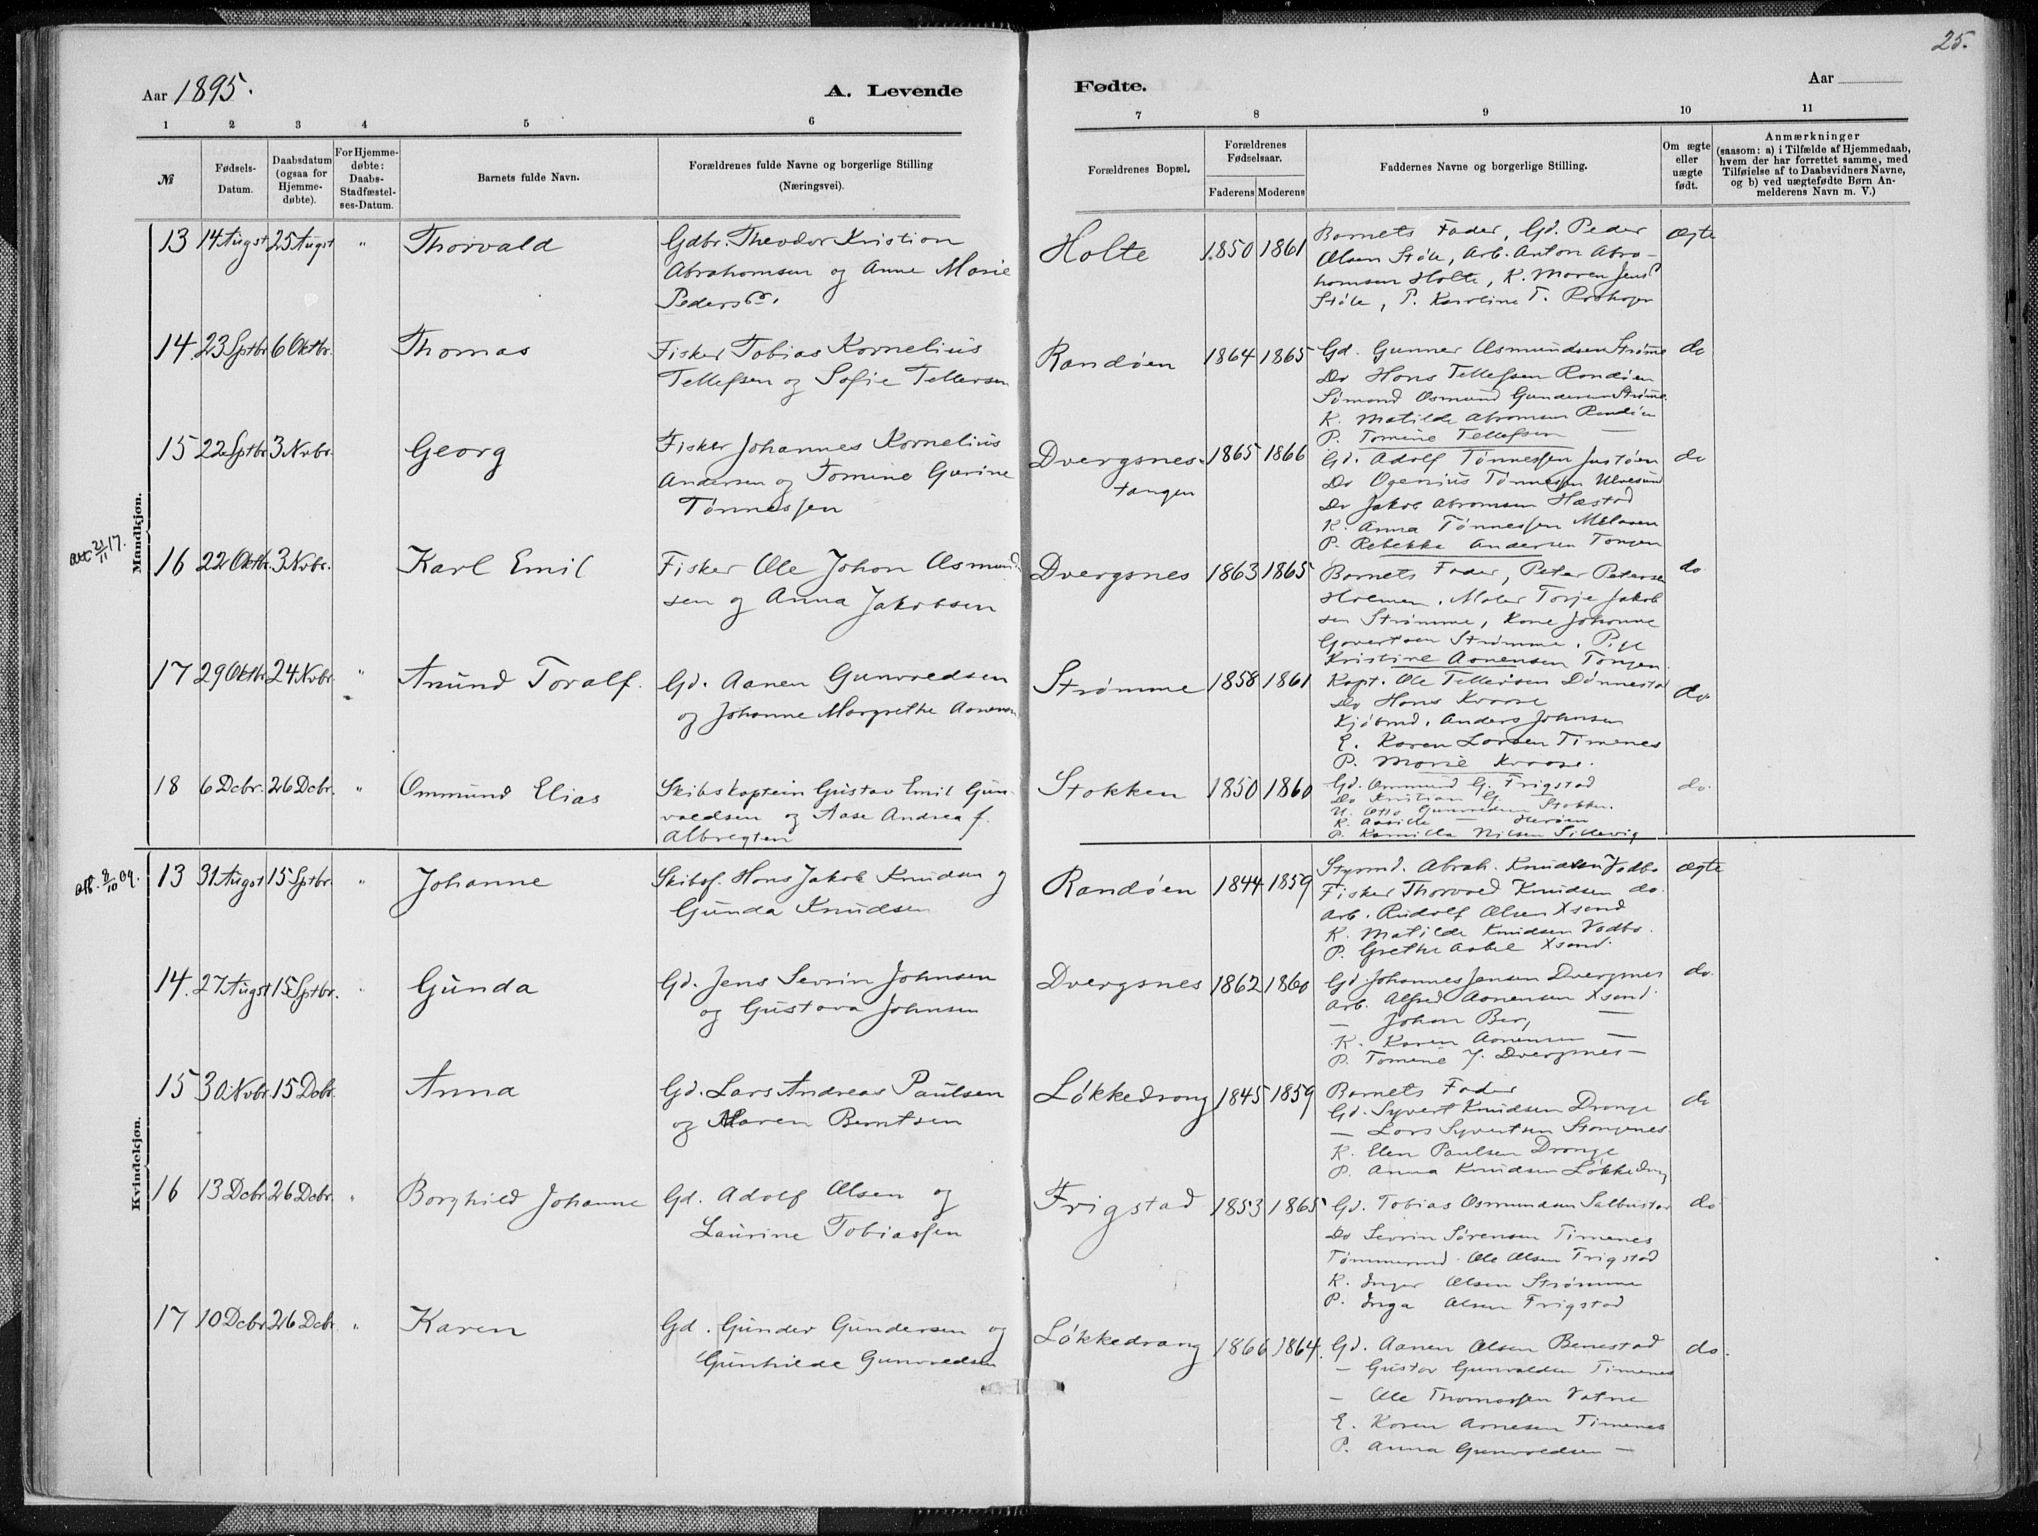 25.
Aar 1895.
A. Levende
Fødte.
Aar
1 2 3 4 5 6
7 8 9 10 11
№
Fødsels-
Datum.
Daabsdatum
(ogsaa for
Hjemme-
døbte).
For Hjemme-
døbte:
Daabs-
Stadfæstel-
ses-Datum.
Barnets fulde Navn.
Forældrenes fulde Navne og borgerlige Stilling
(Næringsvei).
Forældrenes Bopæl.
Forældrenes
Fødselsaar.
Faderens Moderens
Faddernes Navne og borgerlige Stilling.
Om ægte
eller
uægte
født.
Anmærkninger
(saasom: a) i Tilfælde af Hjemmedaab,
hvem der har forrettet samme, med
Tilføielse af to Daabsvidners Navne,
og b) ved uægtefødte Børn An-
melderens Navn m. V.)
Mandkjøn.
13 14 Augst 25 Augst " Thorvald
Gdbr. Theodor Kristian
Abrahamsen og Anne Marie
Pedersdr.
Holte 1850 1861
Barnets Fader, Gd. Peder
Olsen Støle, Arb. Anton Abra-
hamsen Holte, K. Maren Jens
Støle, P. Karoline T.
ægte
14. 23 Sptbr. 6 Oktbr. Thomas
Fisker Tobias Kornelius
Tellefsen og Sofie Tellefsen
Randøen 1864 1865
Gd. Gunner Osmundsen Strømme
Do Hans Tellefsen Randøen
Sømand Osmund Gundersen Strømme
K. Matilde Abramsen Randøen
P. Tomine Tellefsen —
do
15 22 Sptbr. 3 Nvbr. Georg
Fisker Johannes Kornelius
Andersen og Tomine Gurine
Tønnessen
Dvergsnes-
tangen
1865 1866
Gd. Adolf Tønnessen Justøen
Do Ogenius Tønnessen Ulvesund
Do Jakob Abramsen Hæstad
K. Anna Tønnessen
P. Rebekka Andersen Tangen
do
Att 21/11 17.
16 22 Oktbr. 3 Nvbr. Karl Emil
Fisker Ole Johan Osmund-
sen og Anna Jakobsen
Dvergsnes 1863 1865
Barnets Fader, Peter Petersen
Holmen, Maler Torje Jakob
sen Strømme, Kone Johanne
Govertsen Strømme, Pige
Kristine Aanensen Tangen
do
17 29 Oktbr. 24 Nvbr. " Anund Toralf.
Gd. Aanen Gunvaldsen
og Johanne Margrethe Aanensen
Strømme 1858 1861
Kapt. Ole Tellefsen Dønnestad
Do Hans Kroose
Kjøbmd. Anders Johnsen
E. Karen Larsen Timenes
P. Marie Kroose.
do.
18 6 Dcbr. 26 Dcbr. " Ommund Elias
Skibskaptein Gustav Emil Gun-
valdsen og Aase Andrea f.
Albregten
Stokken 1850 1860
Gd. Ommund G. Frigstad
Do Kristian G.
U. Otto Gunvaldsen Stokken.
K. — Herøen
P. Kamilla Nilsen Sillevig
do.
Kvindekjøn.
Aff. 8/10 09.
13 31 Augst 15 Sptbr. " Johanne
Skibsf. Hans Jakob Knudsen og
Gunda Knudsen
Randøen 1844 1859
Styrmd. Abrah. Knudsen Vodbo
Fisker Thorvald Knudsen do.
Arb. Rudolf Olsen Xsand
K. Matilde Knudsen Vodbo.
P. Grethe Xsand.
ægte
14. 27 Augst 15 Sptbr. " Gunda
Gd. Jens Sevrin Johnsen
og Gustava Johnsen
Dvergsnes 1862 1860
Gd Johannes Jensen Dvergsnes
Arb. Alfred Aanensen Xsand.
— Johan Berg —
K. Karen Aanensen —
P. Tomine J. Dvergsnes —
do.
15 30 Nvbr. 15 Dcbr. Anna
Gd. Lars Andreas Paulsen
og Maren Berntsen
Løkkedrang 1845 1859
Barnets Fader
Gd. Syvert Knudsen Drange
— Lars Syvertsen Stangenes.
K. Elen Paulsen Drange
P. Anna Knudsen Løkkedrag
do
16 13 Dcbr. 26 Dcbr. " Borghild Johanne
Gd. Adolf Olsen og
Laurine Tobiassen
Frigstad 1853 1865
Gd. Tobias Osmundsen Salbustad
Do Sevrin Sørensen Timenes
Tømmermd. Ole Olsen Frigstad
K. Inger Olsen Strømme
P. Inga Olsen Frigstad
do
17 10 Dcbr. 26 Dcbr. " Karen
Gd. Gunder Gundersen og
Gunhilde Gunvaldsen
Løkkedrang 1866 1864.
Gd. Aanen Olsen Benestad
— Gustav Gunvaldsen Timenes
— Ole Thomassen Vatne
E. Karen Arnesen Timenes
P. Anna Gunvaldsen —
do.